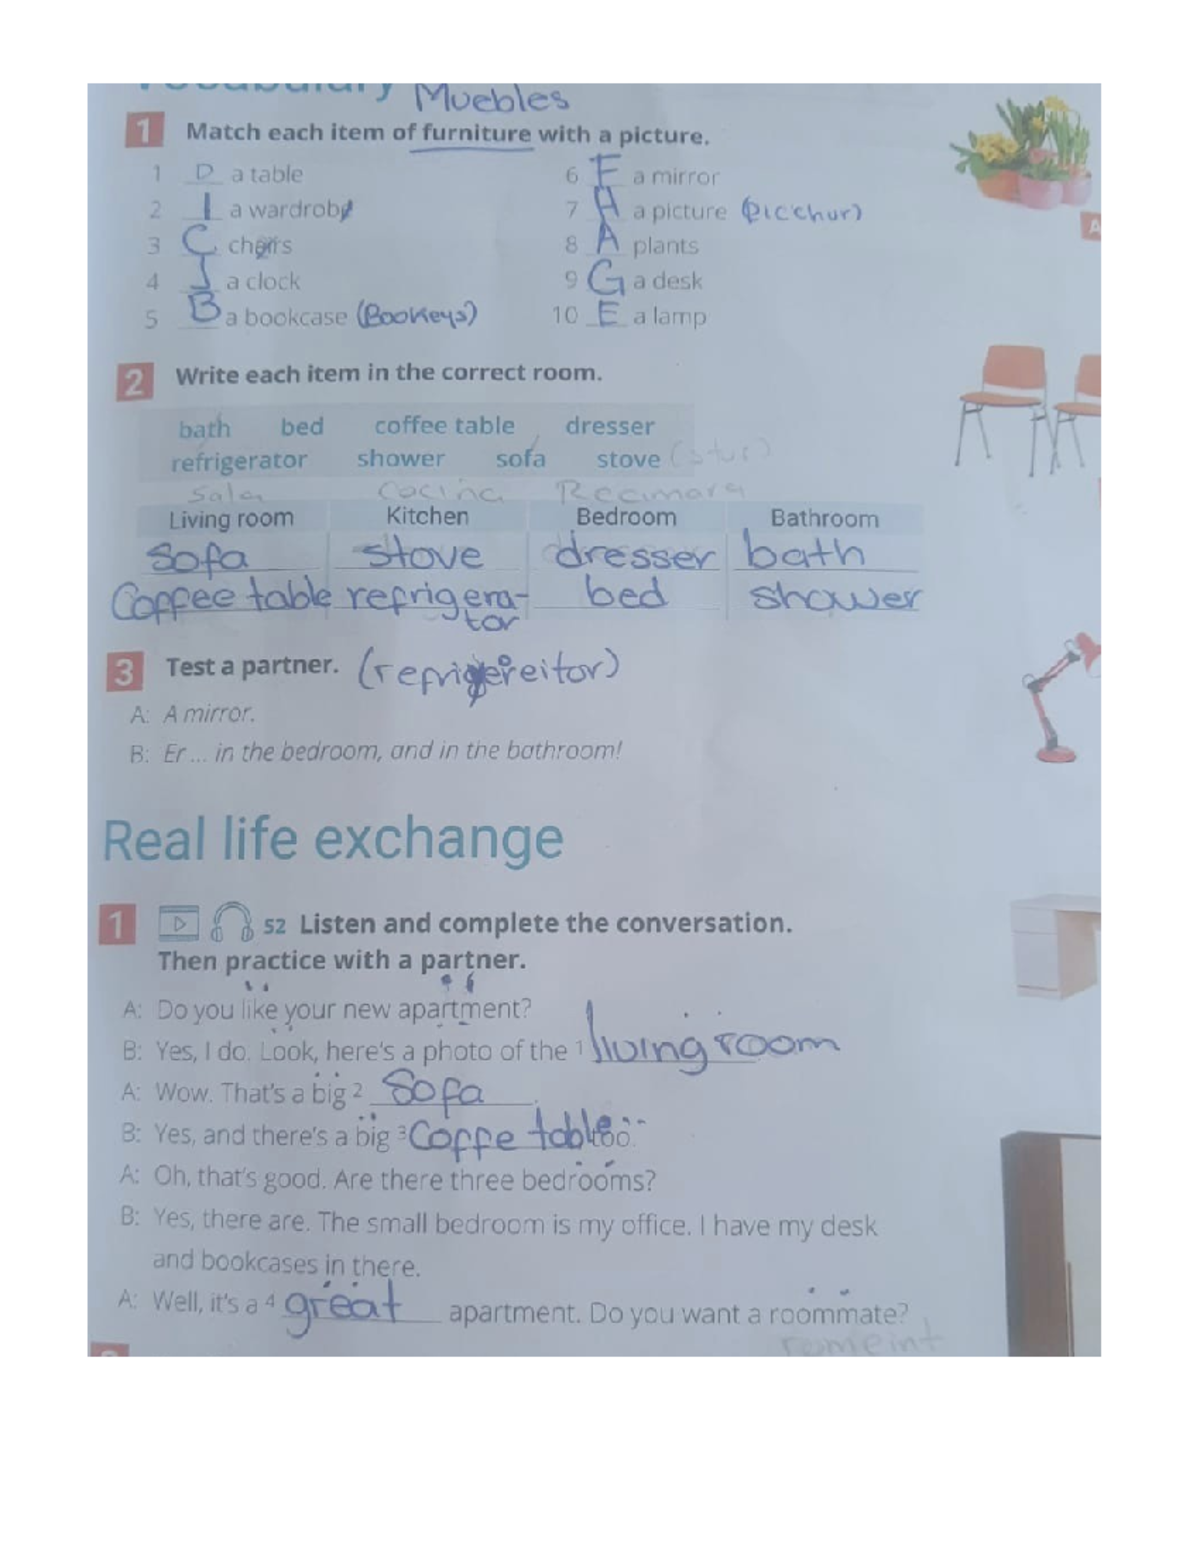 Vocabulary Muebles
1 Match each item of furniture with a picture.
1 D a table
2 I a wardrobe
3 C chairs
4 J a clock
5 B a bookcase (Bookeys)
6 F a mirror
7 H a picture (picchur)
8 A plants
9 G a desk
10 E a lamp
A
2 Write each item in the correct room.
bath bed coffee table dresser
refrigerator shower sofa stove (stur)
Sala Cocina Recamara
Living room Kitchen Bedroom Bathroom
Sofa stove dresser bath
Coffee table refrigera- bed shower
tor
3 Test a partner. (refrigereitor)
A: A mirror.
B: Er ... in the bedroom, and in the bathroom!
Real life exchange
1 52 Listen and complete the conversation.
Then practice with a partner.
A: Do you like your new apartment?
B: Yes, I do. Look, here's a photo of the 1 living room
A: Wow. That's a big 2 Sofa.
B: Yes, and there's a big 3 Coffe table too.
A: Oh, that's good. Are there three bedrooms?
B: Yes, there are. The small bedroom is my office. I have my desk
and bookcases in there.
A: Well, it's a 4 great apartment. Do you want a roommate?
romeint